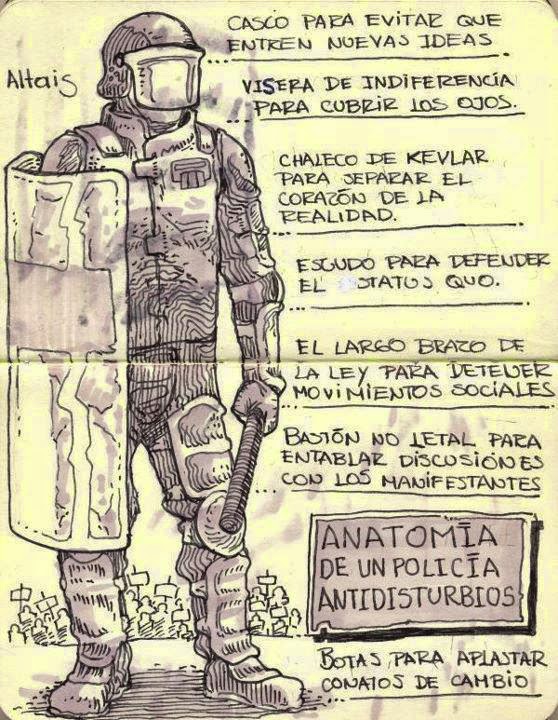 CASCO PARA EVITAR QUE
ENTREN NUEVAS IDEAS
Altais
VISERA DE INDIFERENCIA
PARA CUBRIR LOS OJOS.
CHALECO DE KEVLAR
PARA SEPARAR EL
CORAZÓN DE LA
REALIDAD.
ESCUDO PARA DEFENDER
EL STATUS QUO.
EL LARGO BRAZO DE
LA LEY PARA DETENER
MOVIMIENTOS SOCIALES
BASTÓN NO LETAL PARA
ENTABLAR DISCUSIÓNES
CON LOS MANIFESTANTES
ANATOMÍA
DE UN POLICÍA
ANTIDISTURBIOS
BOTAS PARA APLASTAR
CONATOS DE CAMBIO